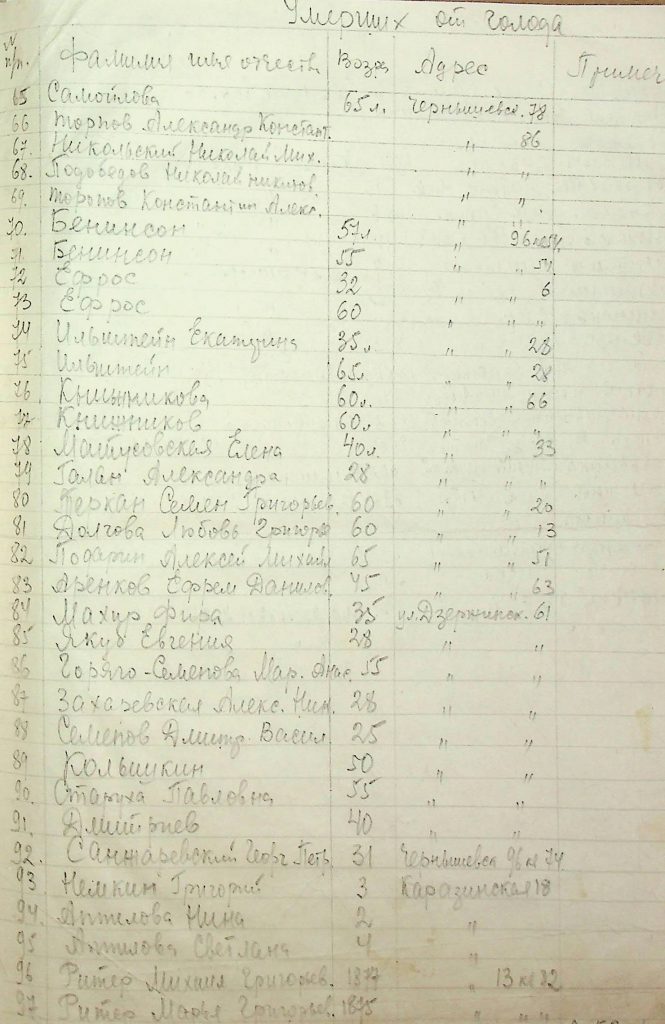 Умерших от голода
N п/п. Фамилия имя отчеств Возра Адрес Примеч
65 Самойлова 65 л. Чернышевск. 78
66 Торопов Александр Констант. " 86
67. Никольский Николай Мих. " "
68. Подобедов Николай Никитов. " "
69. Торопов Константин Алекс. " "
70. Бенинсон 57 л " 96
71. Бенинсон 55 " " 54
72 Ефрос 32 " " 6
73 Ефрос 60 " " "
74 Ильштейн Екатерина 35 л " " 28
75 Ильштейн 65 л " " 28
76 Книжникова 60 л. " " 66
77 Книжников 60 л. " " "
78 Матусовская Елена 40 л. " " 33
79 Галан Александра 28 " " "
80 Теркан Семен Григорьев. 60 " " 20
81 Долгова Любовь Григорье 60 " " 13
82 Алексей Михайл 65 " " 51
83 Аренков Ефрем Данилов. 45 " " 63
84 Махур Фира 35 ул. Дзержинск. 61
85 Якуб Евгения 28 " "
86 Горяго-Семенова Мар. Анас. 55 " "
87 Захаревская Алекс. Ник. 28 " "
88 Семенов Дмитр. Васил. 25 " "
89 Колышкин 50 " "
90. Павловна 55 " "
91. Дмитриев 40 " "
92. Санжаревский Георг. Петр. 31 Чернышевск 96 кв 74
93 Немкин Григорий 3 Каразинская 18
94. Антилова Нина 2 "
95 Антилова Светлана 4 "
96 Ритер Михаил Григорьев. 1877 " 13 кв 82
97 Ритер Марья Григорьев. 1875 " " "